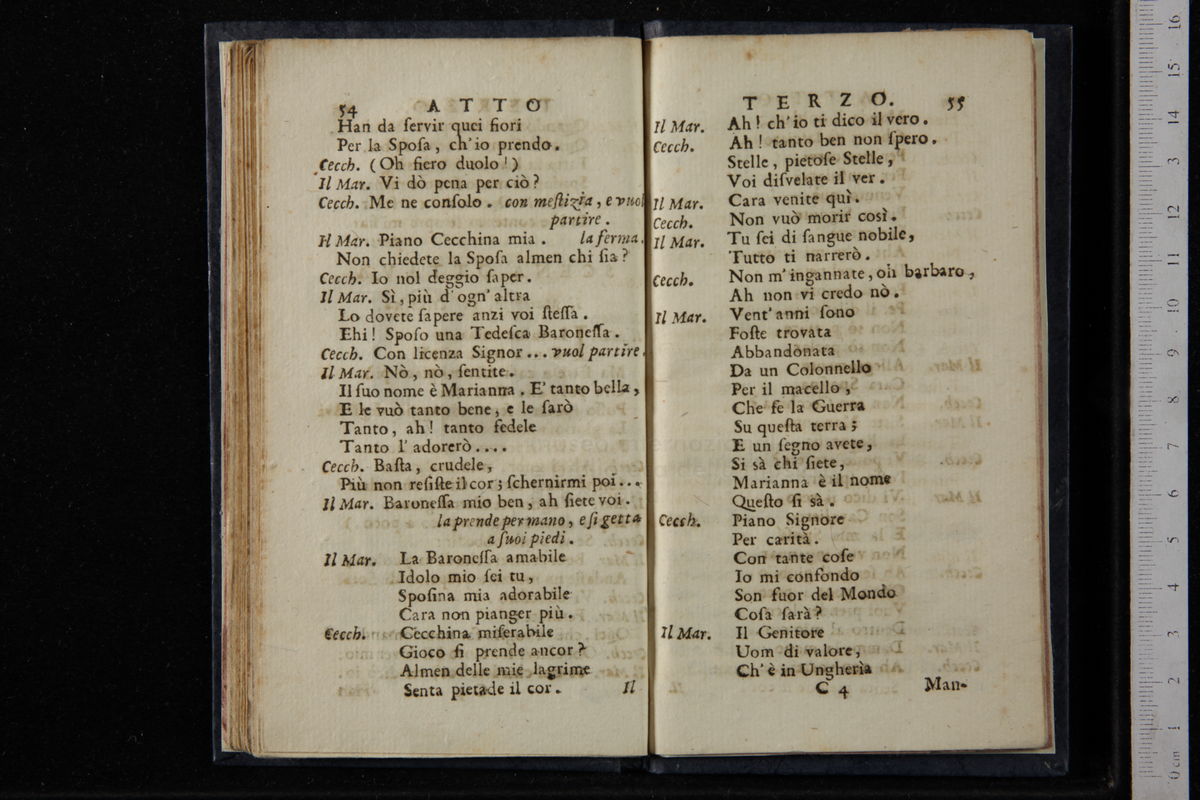 54 ATTO
Han da ſervir quei fiori
Per la Spoſa, ch'io prendo.
Cecch. (Oh fiero duolo!)
Il Mar. Vi dò pena per ciò?
Cecch. Me ne conſolo. con meſtizia, e vuol
partire.
Il Mar. Piano Cecchina mia. la ferma.
Non chiedete la Spoſa almen chi ſia?
Cecch. Io nol deggio ſaper.
Il Mar. Sì, più d'ogn'altra
Lo dovete ſapere anzi voi ſteſſa.
Ehi! Spoſo una Tedeſca Baroneſſa.
Cecch. Con licenza Signor... vuol partire.
Il Mar. Nò, nò, ſentite.
Il ſuo nome è Marianna. E' tanto bella,
E le vuò tanto bene, e le ſarò
Tanto, ah! tanto fedele
Tanto l'adorerò....
Cecch. Baſta, crudele,
Più non reſiſte il cor; ſchernirmi poi...
Il Mar. Baroneſſa mio ben, ah ſiete voi.
la prende per mano, e ſi getta
a ſuoi piedi.
Il Mar. La Baroneſſa amabile
Idolo mio ſei tu,
Spoſina mia adorabile
Cara non pianger più.
Cecch. Cecchina miſerabile
Gioco ſi prende ancor?
Almen delle mie lagrime
Senta pietade il cor. Il
TERZO. 55
Il Mar. Ah! ch'io ti dico il vero.
Cecch. Ah! tanto ben non ſpero.
Stelle, pietoſe Stelle,
Voi diſvelate il ver.
Il Mar. Cara venite quì.
Cecch. Non vuò morir così.
Il Mar. Tu ſei di ſangue nobile,
Tutto ti narrerò.
Cecch. Non m'ingannate, oh barbaro,
Ah non vi credo nò.
Il Mar. Vent'anni ſono
Foſte trovata
Abbandonata
Da un Colonnello
Per il macello,
Che fe la Guerra
Su queſta terra;
E un ſegno avete,
Si sà chi ſiete,
Marianna è il nome
Queſto ſi sà.
Cecch. Piano Signore
Per carità.
Con tante coſe
Io mi confondo
Son fuor del Mondo
Coſa ſarà?
Il Mar. Il Genitore
Uom di valore,
Ch'è in Ungherìa
C 4 Man-
0 cm 1 2 3 4 5 6 7 8 9 10 11 12 13 14 15 16